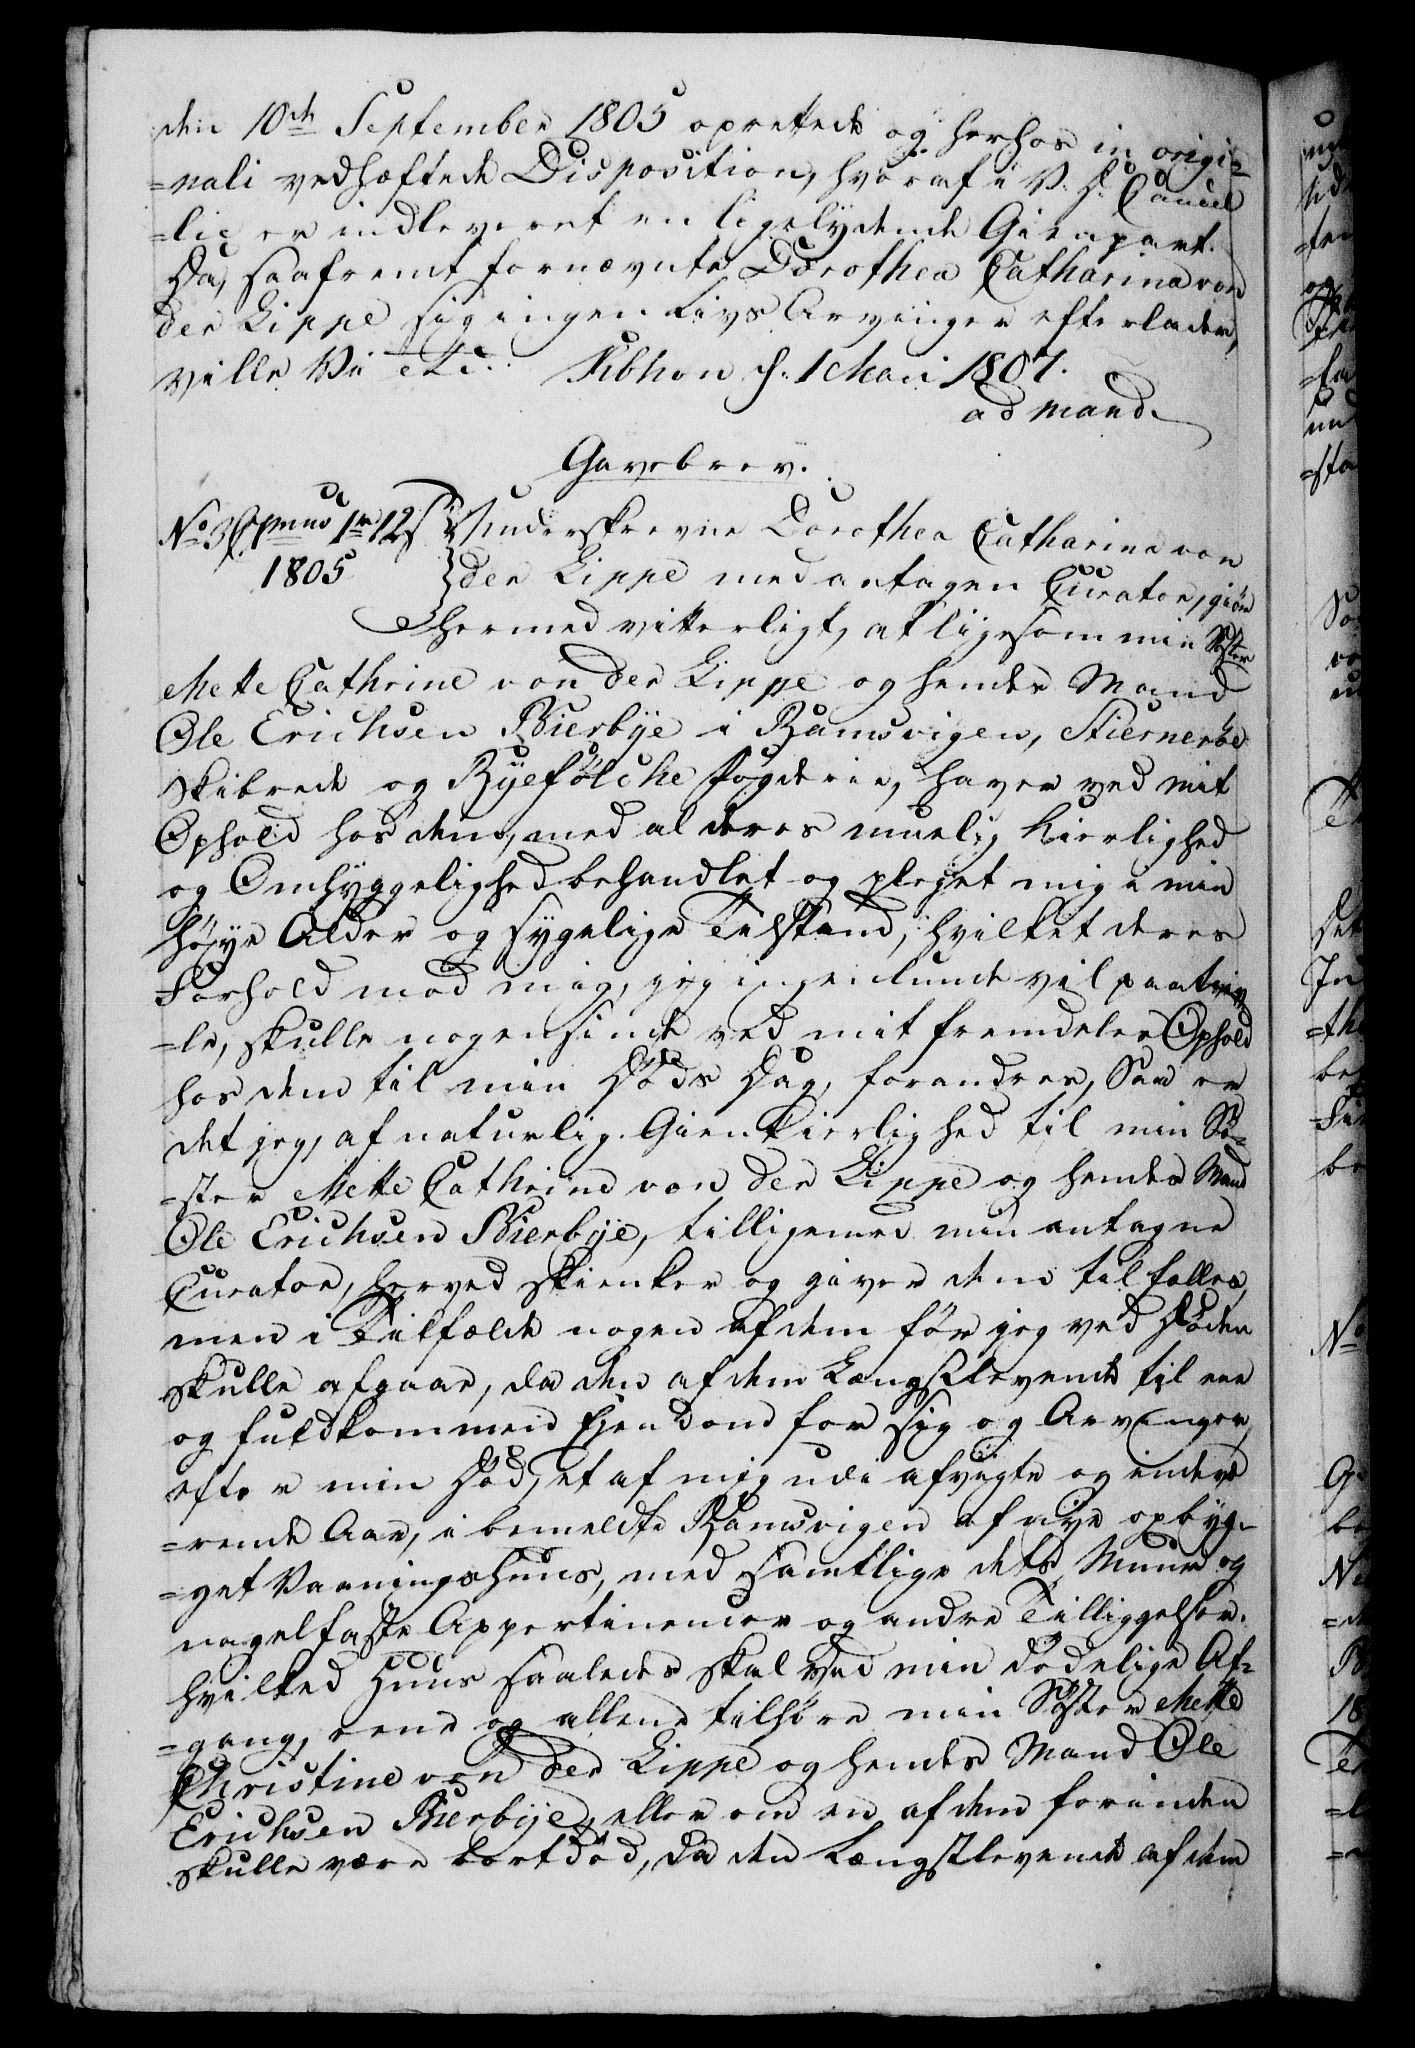 den 10de September 1805 oprettede og herhos in origi-
=nali vedhæftede Disposition, hvoraf i V. D. Cancel
=lie er indleveret en ligelydende Gienpart.
Da, saafremt fornævnte Dorothea Catharina von
der Lippe sig ingen Livs Arvinger efterlader,
ville Vi etc. Kbhvn d. 1 Maii 1807.
ad mand.
Gavebrev.
No 3 1805
Underskrevne Dorothea Catharina von
der Lippe med antagen Curator, giør
hermed vitterligt, at ligesom min Søster
Mette Cathrine von der Lippe og hendes Mand
Ole Erichsen Bierbye i Ramsvigen, Stiernerøe
Skibrede og Ryefølcke Fogderie, haver ved mit
Ophold hos dem, med al deres muelig Kierlighed
og Omhyggelighed behandlet og pleyet mig i min
høye Alder og sygelige Tilstand, hvilket deres
Forhold mod mig, jeg ingenlunde vil paatviv
=le, skulle nogensinde ved mit fremdeles Ophold
hos dem til min Døds Dag, forandres, Saa er
det jeg, af naturlig Gienkierlighed til min Sø-
=ster Mette Cathrine von der Lippe og hendes Mand
Ole Erichsen Bierbye, tilligemed min antagne
Curator, herved skienker og giver dem til fælles,
men i Tilfælde nogen af dem før jeg ved Døden
skulle afgaae, da den af dem Længstlevende til eie
og fuldkommen Ejendom for sig og Arvinger,
efter min Død, et af mig udi afvigte og indevæ
=rende Aar, i bemeldte Ramsvigen af nye opbyg-
=get Vaaningshuus, med samtlige dets Muur og
nagelfaste Appertinencier og andre Tilliggelser.
hvilked Huus saaledes skal ved min dødelige Af-
=gang, eene og allene tilhøre min Søster Mette
Christine von der Lippe og hendes Mand Ole
Erichsen Bierbye, eller om en af dem forinden
skulle være bortdød, da den Længstlevende af dem